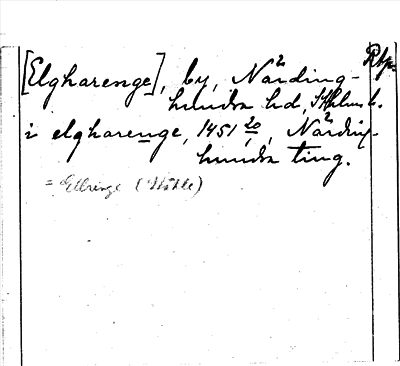 [Elgharenge], by, Närding-
hundra hd, Sthlms l.
i elgharenge, 1451 20/, Närding-
hundra ting.
= Ellringe (Wahle)